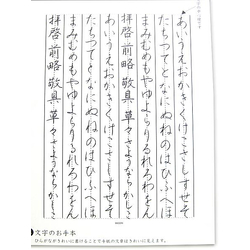 あいうえおかきくけこさしすせそ
たちつてとなにぬねのはひふへほ
まみむめもやゆよらりるれろわをん
拝啓 前略 敬具 草々 さようなら かしこ
あいうえおかきくけこさしすせそ
たちつてとなにぬねのはひふへほ
まみむめもやゆよらりるれろわをん
拝啓 前略 敬具 草々 さようなら かしこ
文字のお手本
ひらがながきれいに書けることで